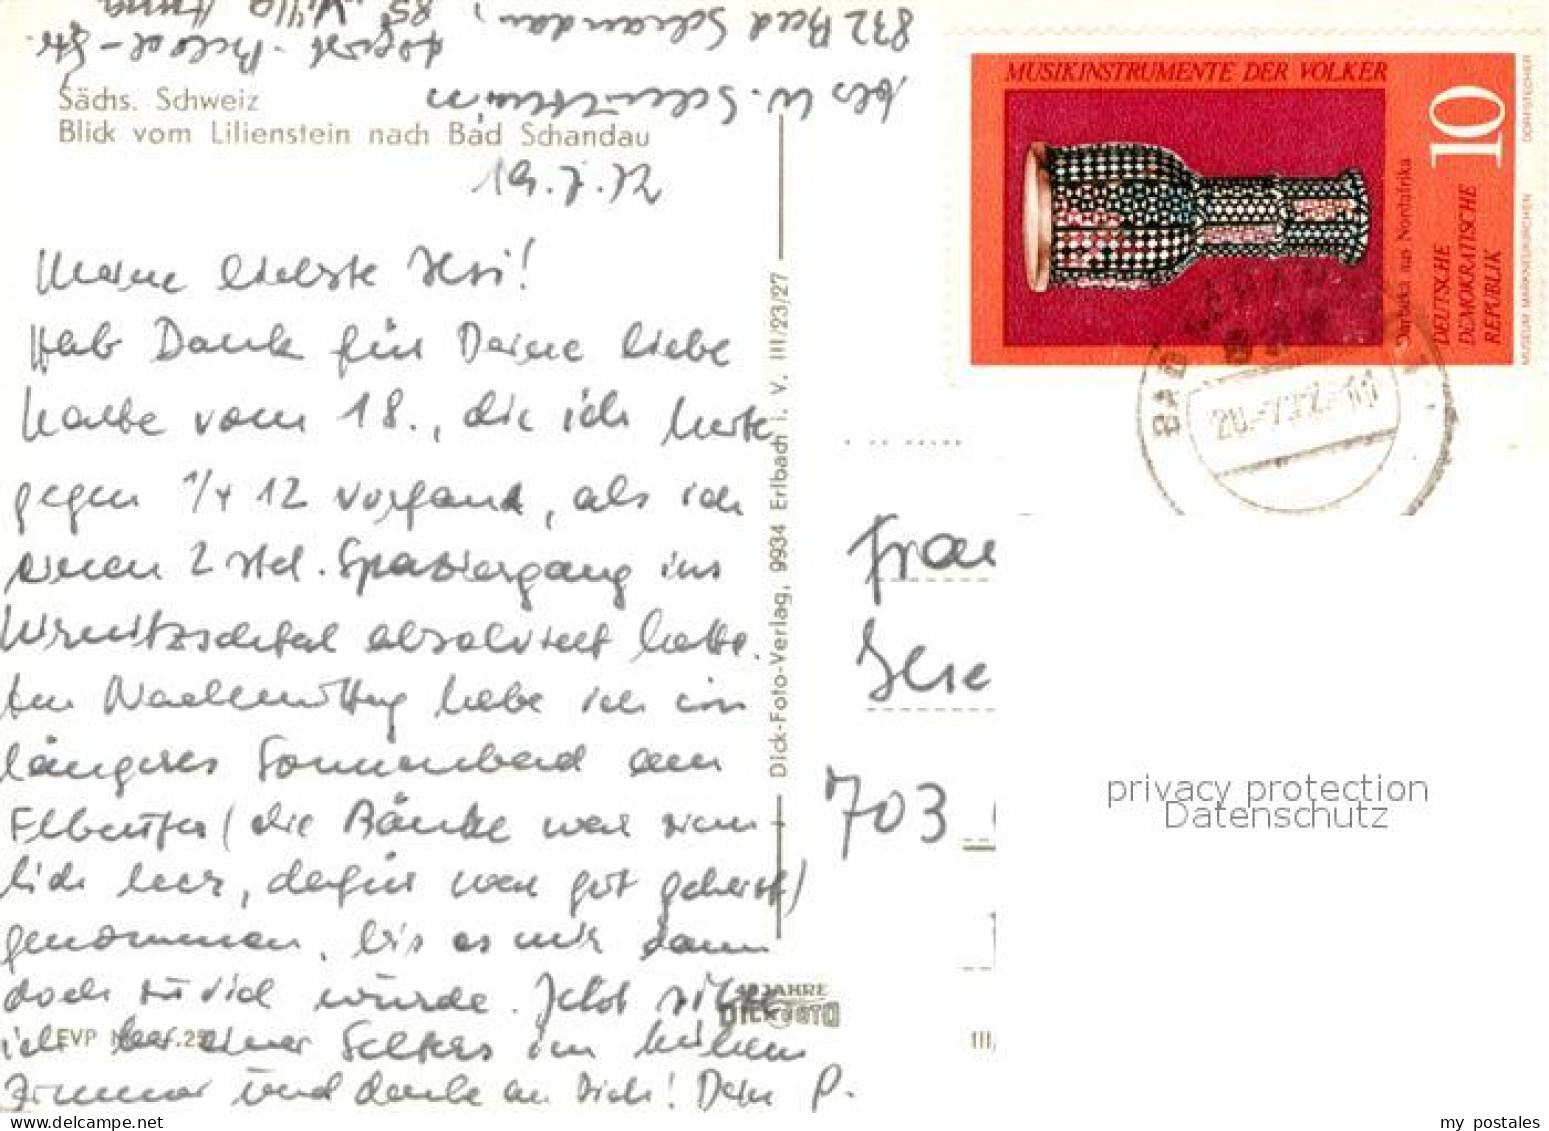 832 Bad Schandau,
bei W.
Sächs. Schweiz
Blick vom Lilienstein nach Bad Schandau
19.7.72
Meine liebste Usi!
Hab Dank für Deine liebe
Karte vom 18., die ich heute
gegen 1/4 12 vorfand, als ich
einen 2 std. Spaziergang ins
Kirnitzschtal absolviert hatte.
Am Nachmittag habe ich ein
längeres Sonnenbad am
Elbeufer (die Bänke war ziem-
lich leer, dafür war gut geheizt)
genommen, bis es mir dann
doch zu viel wurde. Jetzt sitze
ich bei einer Selters im kühlen
Zimmer und danke an Dich! Dein P.
EVP
Dick-Foto-Verlag, 9934 Erlbach i. V. III/23/27
40 JAHRE
DICK FOTO
MUSIKINSTRUMENTE DER VÖLKER
10
Darbuka aus Nordafrika
DEUTSCHE
DEMOKRATISCHE
REPUBLIK
MUSEUM MARKNEUKIRCHEN
DORFSTECHER
BAD
20.-7.72.-11
Frau
Gise
703
III/
privacy protection
Datenschutz
my postales